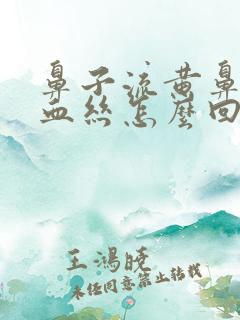 鼻子流黄鼻
血丝怎麼回
王鸿晓
未经同意禁止转载